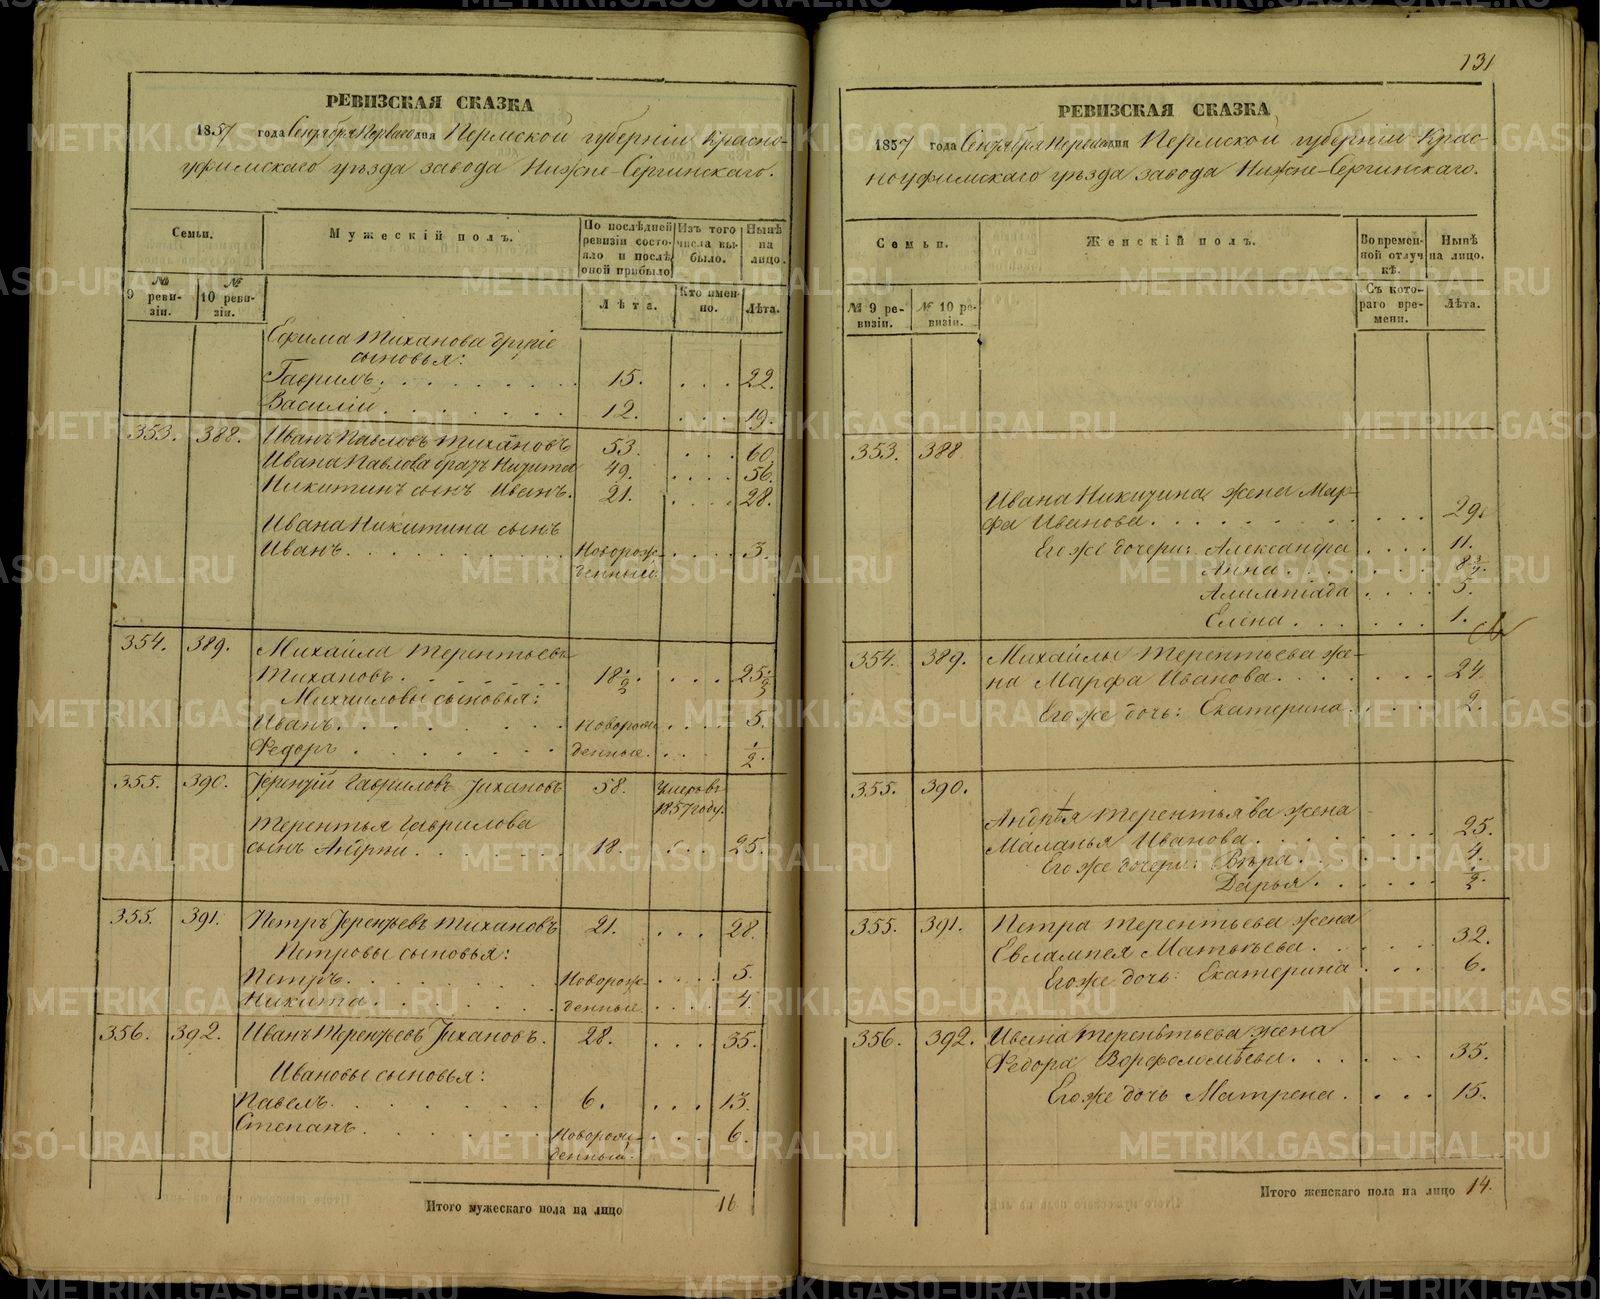 РЕВИЗСКАЯ СКАЗКА
1857 года Сентября Перваго дня Пермской губерніи Красно-
уфимскаго уѣзда завода Нижне-Сергинскаго.
Семьи.
Мужескій полъ.
По послѣдней ревизіи состояло и послѣ оной прибыло
Изъ того числа выбыло.
Нынѣ на лицо.
№ 9 ревизіи.
№ 10 ревизіи.
Лѣта.
Кто именно.
Лѣта.
Ефима Тиханова другіе
сыновья:
Гаврилъ. 15. 22.
Василій. 12. 19.
353. 388. Иванъ Павловъ Тихановъ 53. 60.
Ивана Павлова братъ Никита 49. 56.
Никитинъ сынъ Иванъ. 21. 28.
Ивана Никитина сынъ
Иванъ. Новорож- 3.
денный.
354. 389. Михайла Терентьевъ
Тихановъ. 18½. 25½
Михаиловы сыновья:
Иванъ. Новорож- 5.
Федоръ денные. ½.
355. 390. Терентій Гавриловъ Тихановъ 58. Умеръ въ
1857 году.
Терентья Гаврилова
сынъ Андрей. 18. 25.
355. 391. Петръ Терентьевъ Тихановъ 21. 28.
Петровы сыновья:
Петръ. Новорож- 5.
Никита. денные. 4.
356. 392. Иванъ Терентьевъ Тихановъ. 28. 35.
Ивановы сыновья:
Павелъ. 6. 13.
Степанъ. Новорож- 6.
денный.
Итого мужескаго пола на лицо 16
131
РЕВИЗСКАЯ СКАЗКА
1857 года Сентября Перваго дня Пермской губерніи Крас-
ноуфимскаго уѣзда завода Нижне-Сергинскаго.
Семьи.
Женскій полъ.
Во временной отлучкѣ.
Нынѣ на лицо.
№ 9 ревизіи.
№ 10 ревизіи.
Съ котораго времени.
Лѣта.
353. 388
Ивана Никитина жена Мар-
фа Иванова. 29.
Его же дочери: Александра 11.
Анна. 8¾.
Алимпіада 5.
Елена. 1.
354. 389. Михайлы Терентьева же-
на Марфа Иванова. 24
Его же дочь: Екатерина. 2.
355. 390.
Андрѣя Терентьява жена
Маланья Иванова. 25.
Его же дочери: Вѣра. 4.
Дарья. ½.
355. 391. Петра Терентьева жена
Евлампея Матвѣева. 32.
Его же дочь: Екатерина 6.
356. 392. Ивана Терентьева жена
Федора Ворфоломѣева. 35.
Его же дочь Матрена. 15.
Итого женскаго пола на лицо 14.
METRIKI.GASO-URAL.RU